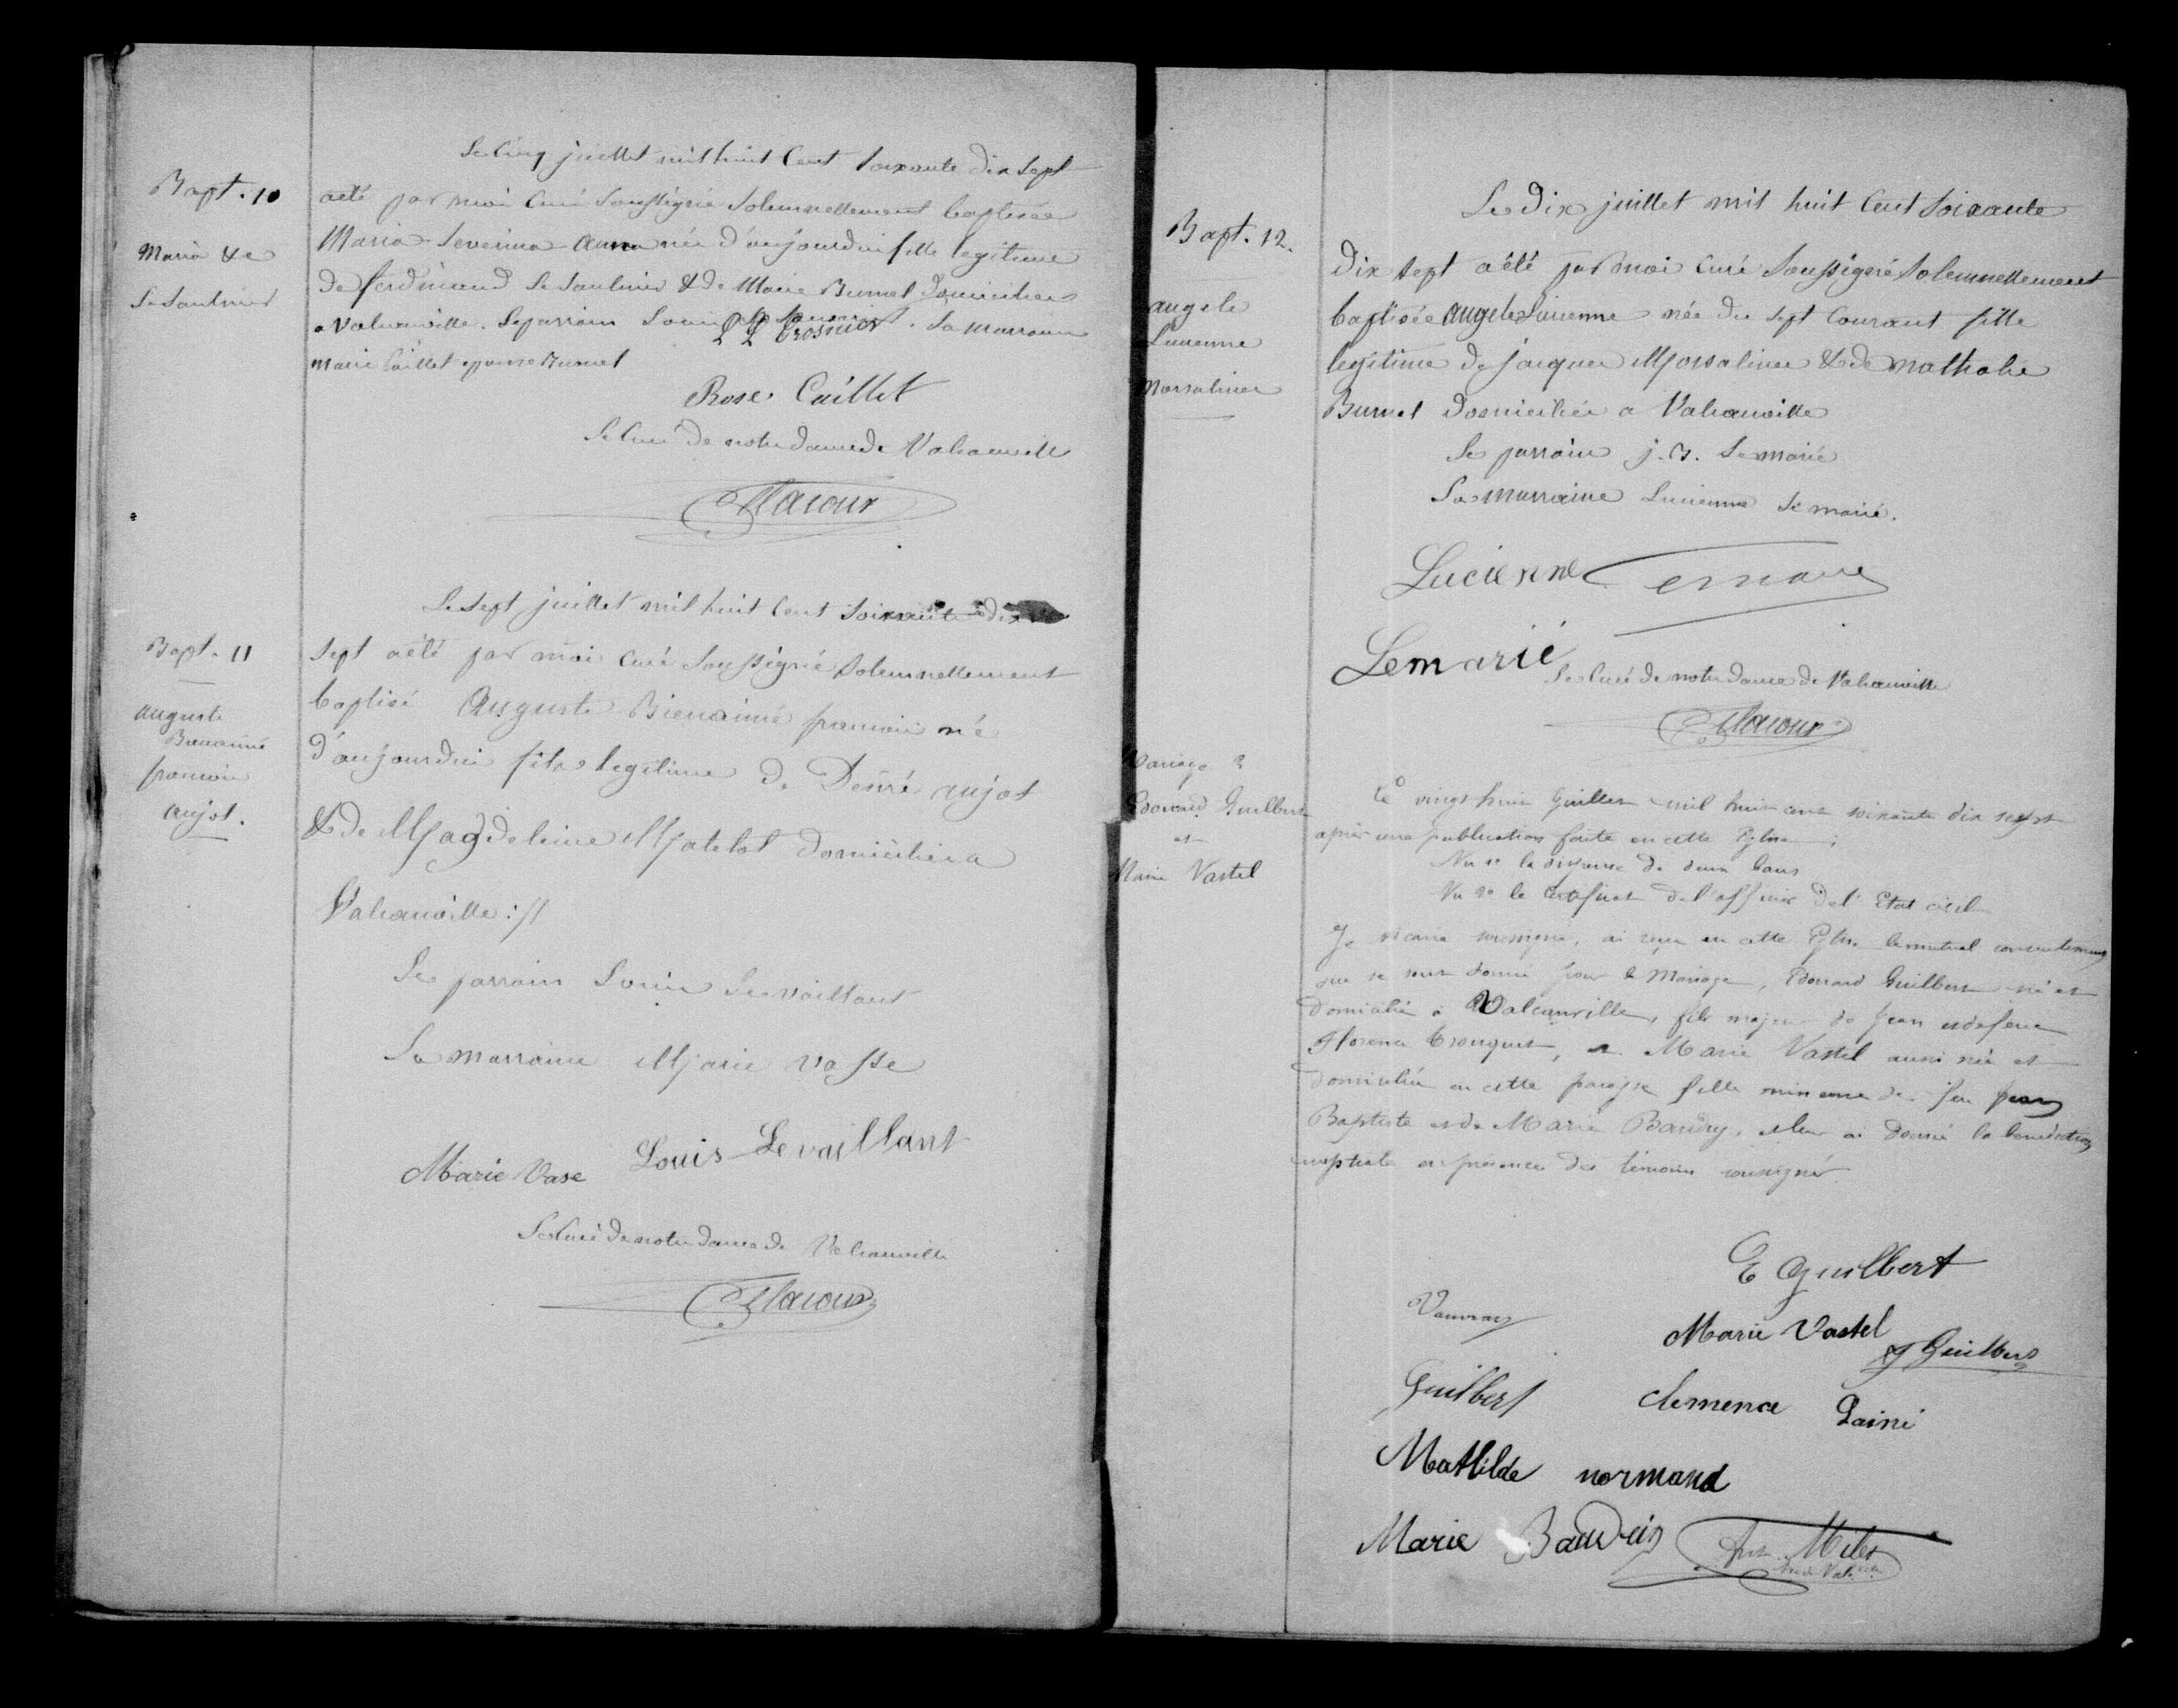 Bapt. 10
Maria &a
Le Saulnier
Le Cinq juillet mil huit Cent Soixante dix Sept
a été par moi Curé Soussigné Solemnellement baptisée
Maria Severina anna née d'aujourdui fille legitime
de ferdinand Le Saulnier & de Marie Burnel domiciliés
a Valcanville. Le parrain Louis . La marraine
Marie Caillet epouse Burnel
Rose Caillet
Le Curé de notre dame de Valcanville
Bapt. 11
auguste
Bienaimé
francois
aujot.
Le Sept juillet mil huit Cent Soixante dix
Sept a été par moi Curé Soussigné Solemnellement
baptisé Auguste Bienaimé francois né
d'aujourdui fils legitime de Desiré aujot
& de Magdeleine Matelot domiciliés a
Valcanville ://
Le parrain Louis Le vaillant
La marraine Marie vasse
Marie Vase Louis Levaillant
Le Curé de notre dame de Valcanville
Bapt. 12.
angele
Lucienne
Morsalines
Le Dix juillet mil huit Cent Soixante
Dix Sept a été par moi Curé Soussigné Solemnellement
baptisée Angele Lucienne née du Sept Courant fille
legitime de jacques Morsalines & de nathalie
Burnel Domiciliés a Valcanville
Le parrain j. B. Le marié
La marraine Lucienne Le marié.
Lucienne Lemarie
Lemarié
Le Curé de notre dame de Valcanville
Mariage 2
Edouard Guilbert
et
Marie Vastel
Le vingt huit Juillet mil huit cent soixante dix sept
après une publication faite en cette Eglise ;
Vu 1º la dispense de deux bans
Vu 2º le certificat de l'officier de l'Etat civil
Je vicaire soussigné, ai reçu en cette Eglise le mutuel consentement
que se sont donné pour le Mariage, Edouard Guilbert né et
domicilié à Valcanville, fils majeur de Jean et de feue
Florence Trouquet, et Marie Vastel aussi née et
domiciliée en cette paroisse fille mineure de feu Jean
Baptiste et de Marie Baudry, et leur ai donné la benediction
nuptiale en présence des témoins soussignés.
E Guilbert
Vauvray
Marie Vastel
Guilbert
Guilbert clemence Lainé
Mathilde normand
Marie